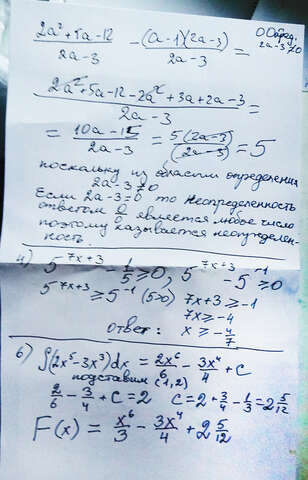 О Обред.
2a-3≠0
(2a²+5a-12)/(2a-3) - ((a-1)(2a-3))/(2a-3) =
(2a²+5a-12-2a²+3a+2a-3)/(2a-3) =
= (10a-15)/(2a-3) = 5(2a-3)/(2a-3) = 5
поскольку из области определения
2a-3≠0
Если 2a-3=0 то неопределенность
ответом является любое число
поэтому называется неопределен
ность.
4) 5^(7x+3) - 1/5 ≥ 0, 5^(7x+3) - 5^(-1) ≥ 0
5^(7x+3) ≥ 5^(-1) (5>0) 7x+3 ≥ -1
7x ≥ -4
Ответ: x ≥ -4/7
6) ∫(2x⁵-3x³)dx = 2x⁶/6 - 3x⁴/4 + c
подставим (1,2)
2/6 - 3/4 + c = 2 c = 2 + 3/4 - 1/3 = 2 5/12
F(x) = x⁶/3 - 3x⁴/4 + 2 5/12